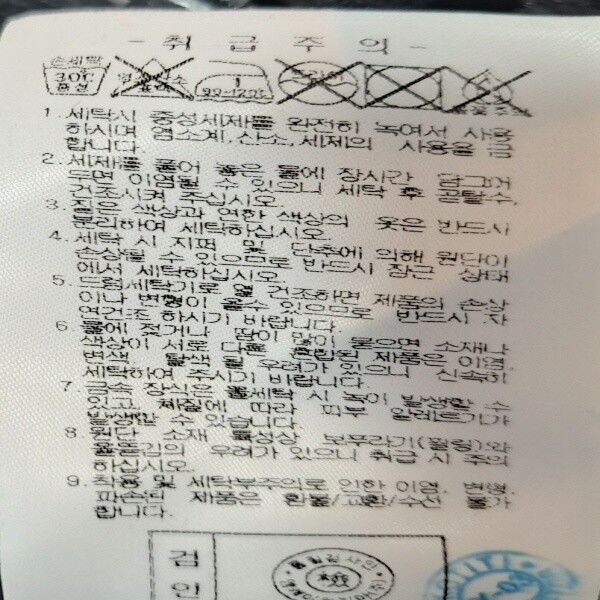 - 취 급 주 의 -
손세탁
30℃
중성
염소
90~120℃
드라이
1. 세탁시 중성세제를 완전히 녹여서 사용
하시며 염소계, 산소, 세제의 사용을 금
합니다.
2. 세제를 풀어 놓은 물에 장시간 담그어
두면 이염될 수 있으니 세탁 후 곧탈수,
건조시켜 주십시오.
3. 짙은 색상과 연한 색상의 옷은 반드시
분리하여 세탁하십시오.
4. 세탁 시 지퍼 및 단추에 의해 원단이
손상될 수 있으므로 반드시 잠근 상태
에서 세탁하십시오.
5. 드럼세탁기로 열 건조하면 제품의 손상
이나 변형이 될수 있으므로 반드시 자
연건조 하시기 바랍니다.
6. 물에 젖거나 땀이 많이 묻으면 소재나
색상이 서로 다른 혼합된 제품은 이염,
변색, 탈색 될 우려가 있으니 신속히
세탁하여 주시기 바랍니다.
7. 금속 장식은 물세탁 시 녹이 발생할 수
있고 체질에 따라 피부 알레르기가
발생할 수 있습니다.
8. 원단 소재 특성상 보푸라기(필링)와
올뜯김의 우려가 있으니 취급 시 주의
하십시오.
9. 착용 및 세탁부주의로 인한 이염, 변형,
파손된 제품은 환불/교환/수선 불가
합니다.
검
인
품질검사인